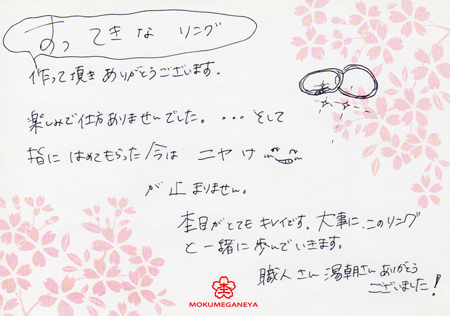 すってきな リング
作って頂きありがとうございます。
楽しみで仕方ありませんでした。・・・そして
指にはめてもらった今は ニヤけ
が止まりません。
杢目がとてもキレイです。大事に、このリング
と一緒に歩んでいきます。
職人さん 湯朝さん ありがとう
ございました!
MOKUMEGANEYA